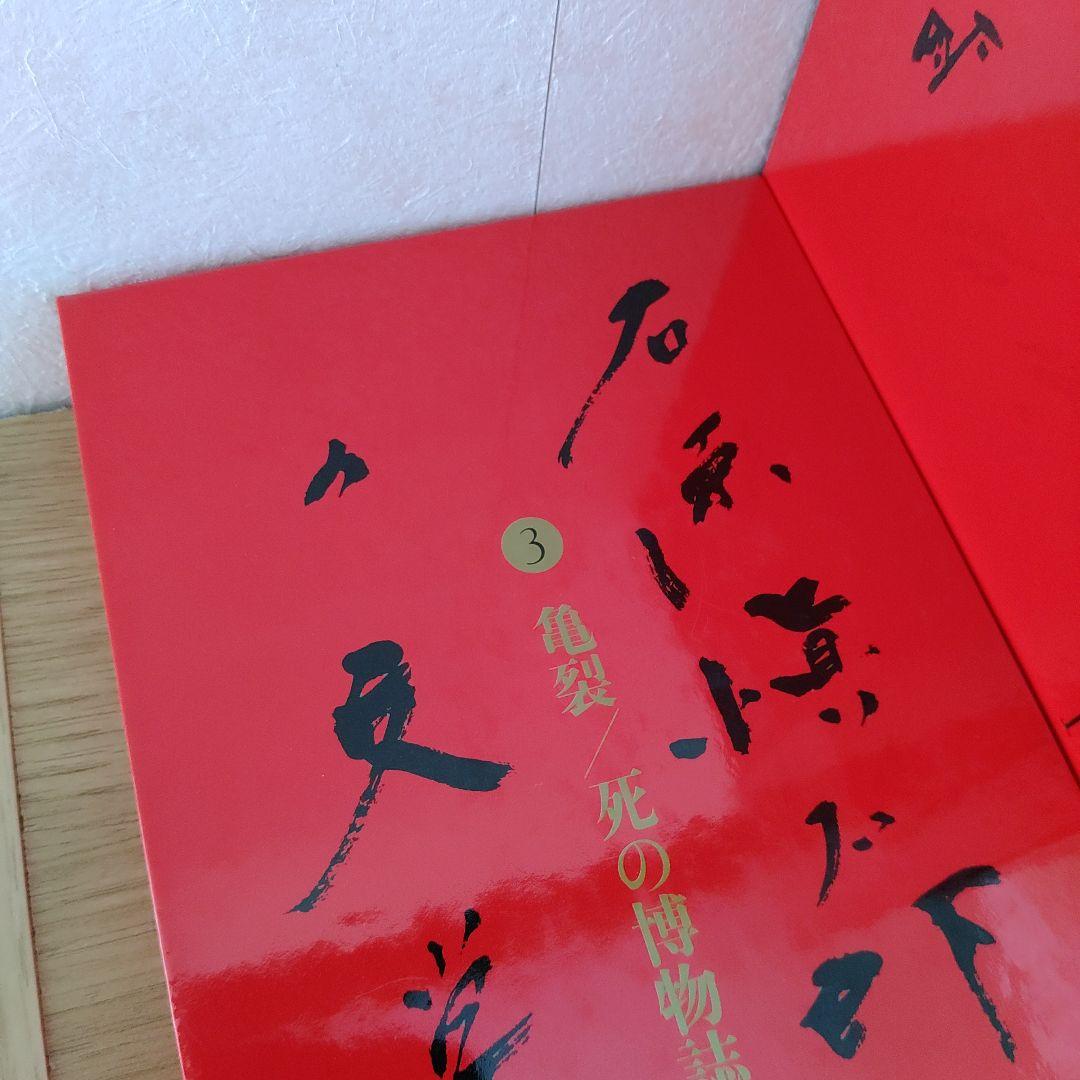 石原慎太郎
3
亀裂/死の博物誌
の文学